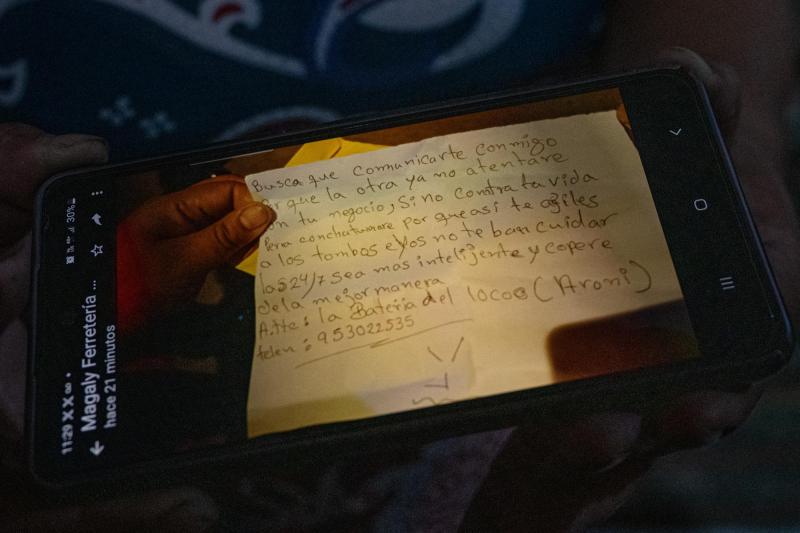 11:29
30%
Magaly Ferretería ...
hace 21 minutos
Busca que comunicarte conmigo
que la otra ya no atentare
tu negocio, Si no contra tu vida
conchatumare por que asi te
a los tombos ellos no te ban cuidar
las 24/7 sea mas intelijente y copere
dela mejor manera
Atte: la Bateria del locoo (Aroni)
telen: 953022535